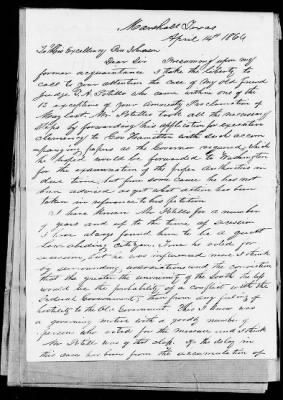 Marshall Texas
April 14th 1866
To His Excellency Pres Johnson
Dear Sir Presuming upon my
former acquaintance I take the liberty to
call to your attention the case of My Old friend
Judge who came within one of the
13 exceptions of your Amnesty Proclamation of
May last. Mr took all the necessary
steps by forwarding his application for executive
clemency to Gov Hamilton with such accom
panying papers as the Governor required, which
he hoped would be forwarded to Washington
for the examination of the proper authorities
there, but from some cause he has not
been advised as yet what action has been
taken in reference to his petition
I have known Mr for a number
of years and up to the time of secession
I have always found him to be a quiet
law abiding citizen. True he voted for
secession, but he was influenced more I think
by surrounding and the conviction
that the greater the unanimity of the South the less
would be the probability of a conflict with the
Federal Government, than from any feeling of
hostility to the Old Government. This I know was
a governing motive with a goodly number of
persons who voted for the measure and I think
Mr was of that class. If the delay in
this case has been from the accumulation of